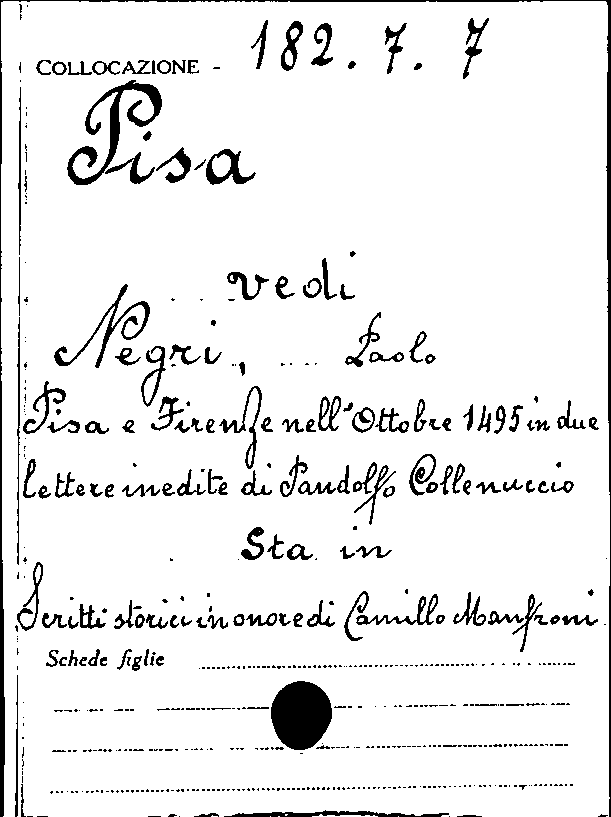 COLLOCAZIONE - 182.7.7
Pisa
vedi
Negri, Paolo
Pisa e Firenze nell'Ottobre 1495 in due
lettere inedite di Pandolfo Collenuccio
Sta in
Scritti storici in onore di Camillo Manfroni
Schede figlie